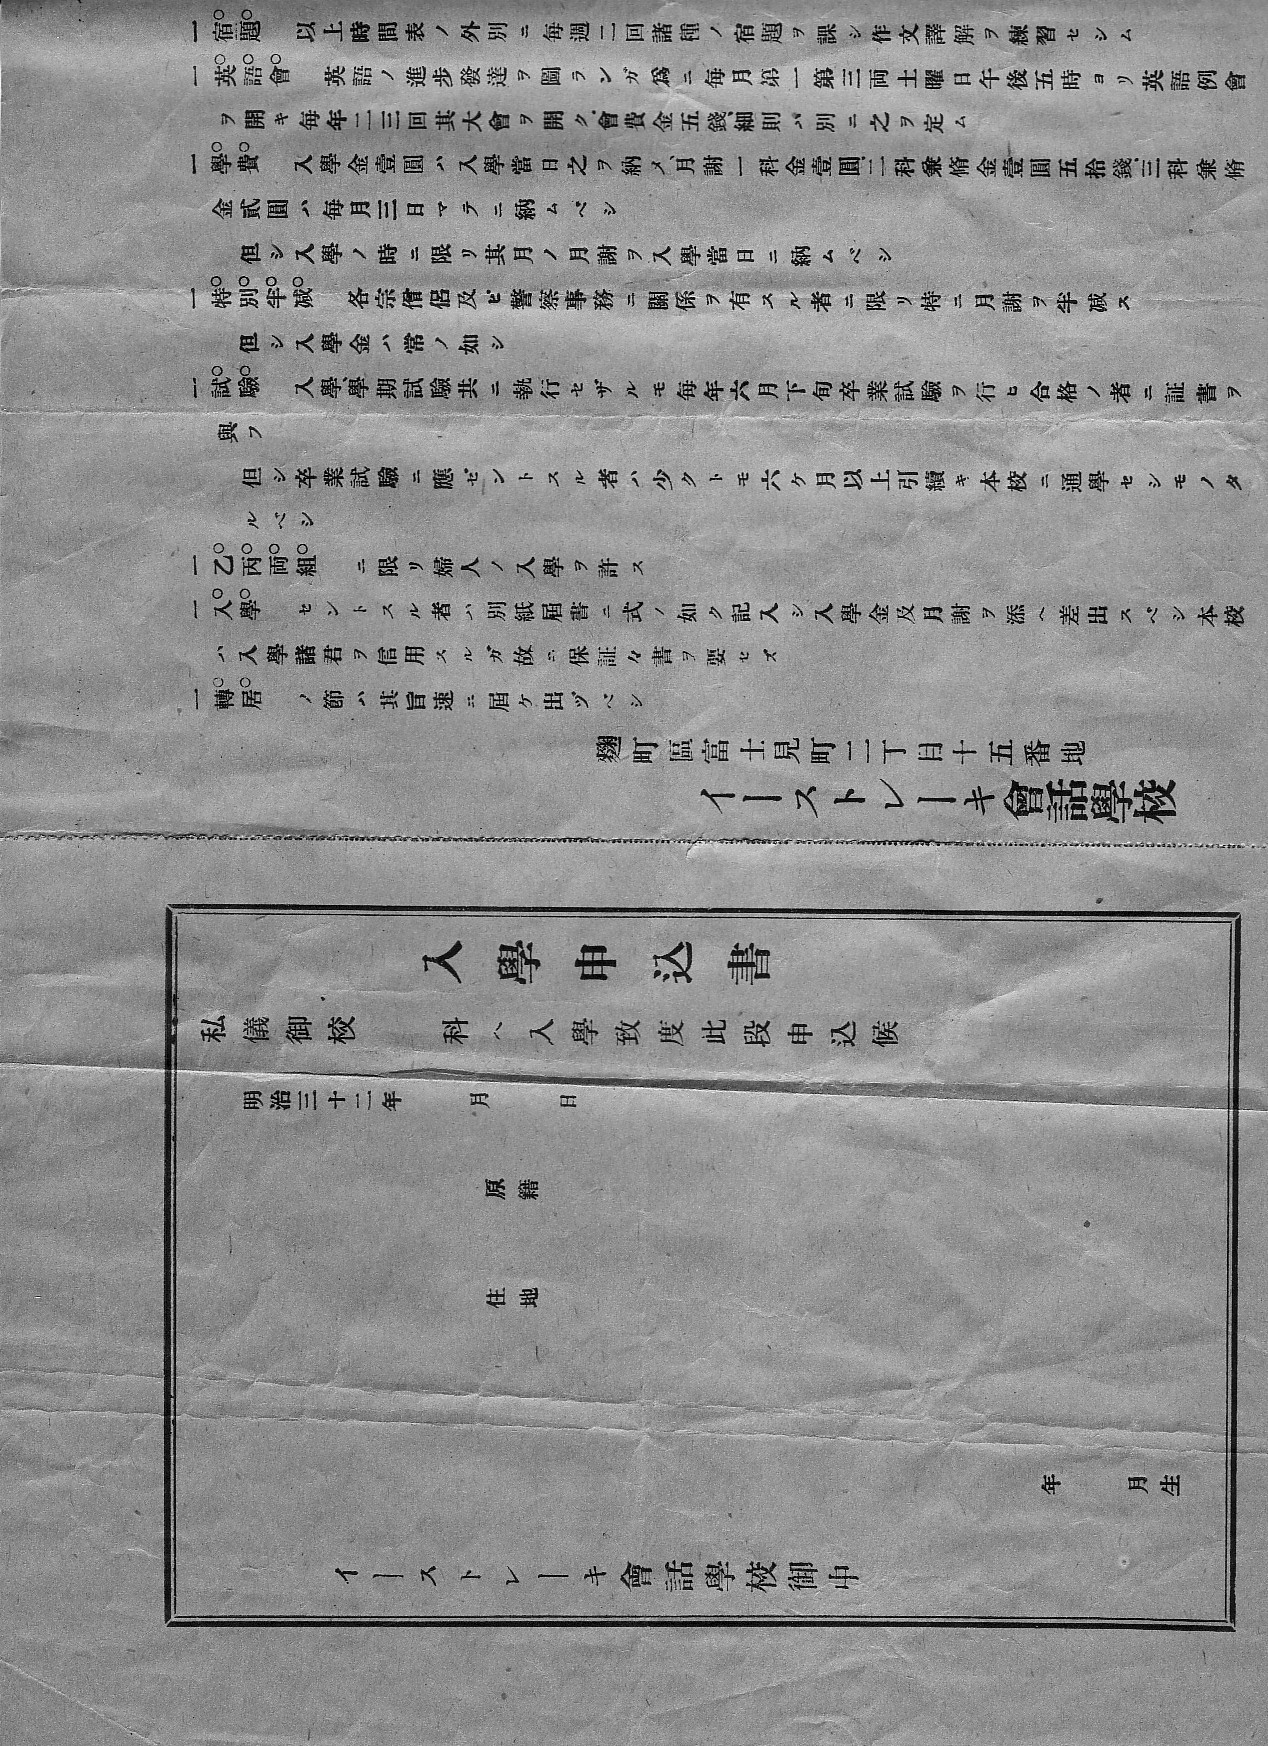 一宿題　以上時間表ノ外別ニ毎週二回諸種ノ宿題ヲ課シ作文譯解ヲ練習セシム
一英語會　英語ノ進步發達ヲ圖ランガ爲ニ毎月第一第三両土曜日午後五時ヨリ英語例會
ヲ開キ毎年二三回其大會ヲ開ク、會費金五錢、細則ハ別ニ之ヲ定ム
一學費　入學金壹圓ハ入學當日之ヲ納メ、月謝一科金壹圓、二科兼脩金壹圓五拾錢、三科兼脩
金貳圓ハ毎月三日マテニ納ムベシ
但シ入學ノ時ニ限リ其月ノ月謝ヲ入學當日ニ納ムベシ
一特別半減　各宗僧侶及ビ警察事務ニ關係ヲ有スル者ニ限リ特ニ月謝ヲ半減ス
但シ入學金ハ常ノ如シ
一試驗　入學、學期試驗共ニ執行セザルモ毎年六月下旬卒業試驗ヲ行ヒ合格ノ者ニ証書ヲ
與フ
但シ卒業試驗ニ應ゼントスル者ハ少クトモ六ケ月以上引續キ本校ニ通學セシモノタ
ルベシ
一乙丙両組　ニ限リ婦人ノ入學ヲ許ス
一入學　セントスル者ハ別紙屆書ニ式ノ如ク記入シ入學金及月謝ヲ添ヘ差出スベシ本校
ハ入學諸君ヲ信用スルガ故ニ保証々書ヲ要セズ
一轉居　ノ節ハ其旨速ニ屆ケ出ヅベシ
麴町區富士見町二丁目十五番地
イーストレーキ會話學校
入學申込書
私儀御校　科ヘ入學致度此段申込候
明治三十二年　月　日
原籍
住地
年　月生
イーストレーキ會話學校御中